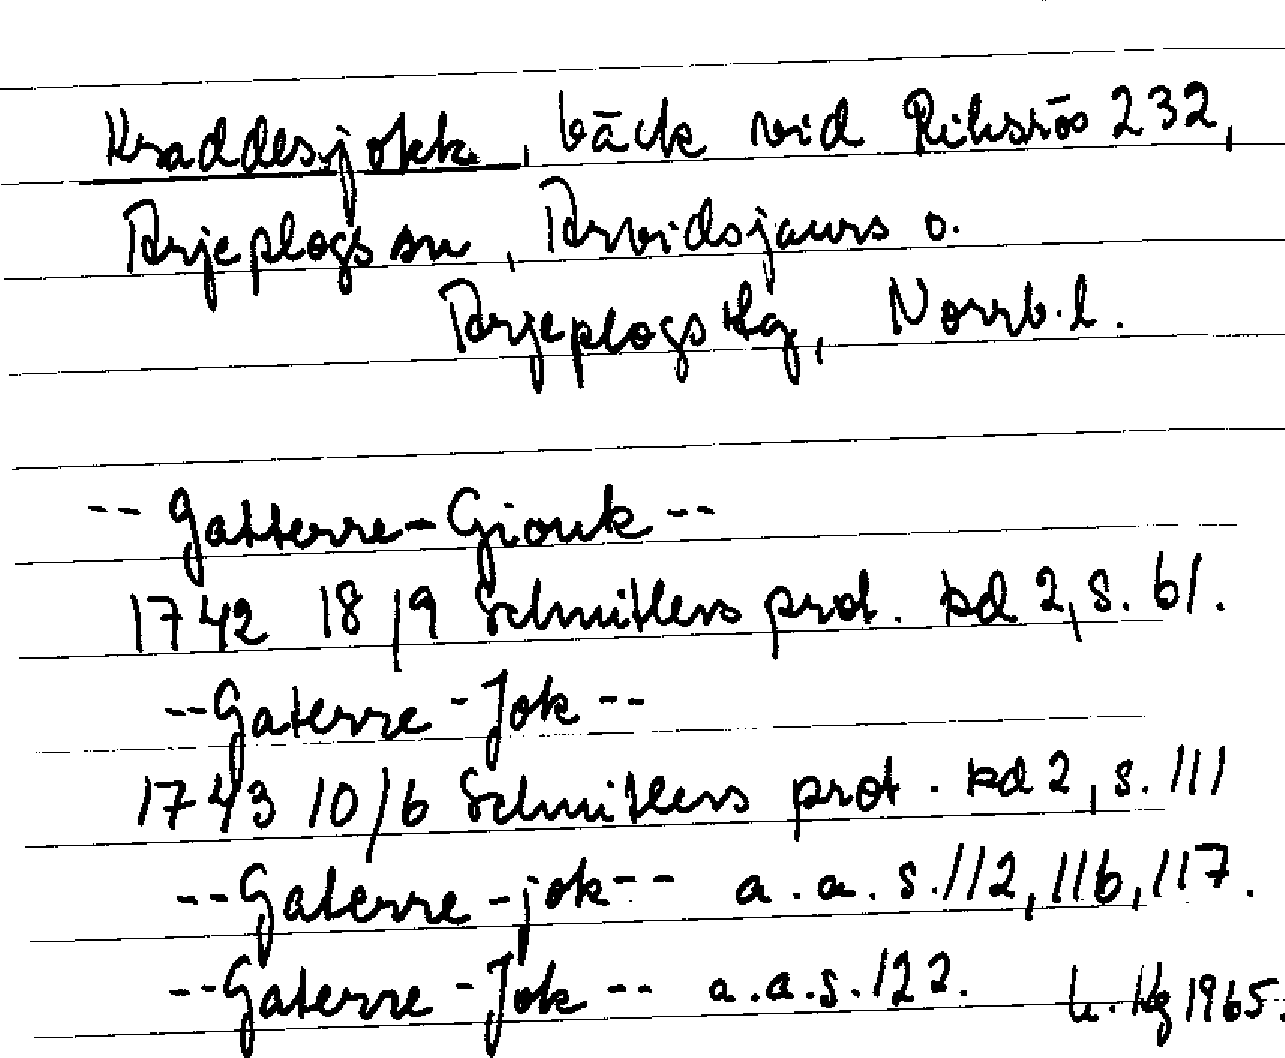 Kraddesjokk, bäck vid Riksrös 232,
Arjeplogs sn, Arvidsjaurs o.
Arjeplogs tlg, Norrb. l.
-- Gatterre-Giouk --
1742 18/9 Schnitlers prot. bd 2, s. 61.
-- Gaterre-Jok --
1743 10/6 Schnitlers prot. bd 2, s. 111
-- Gaterre-jok -- a. a. s. 112, 116, 117.
-- Gaterre-Jok -- a. a. s. 122.
1965.